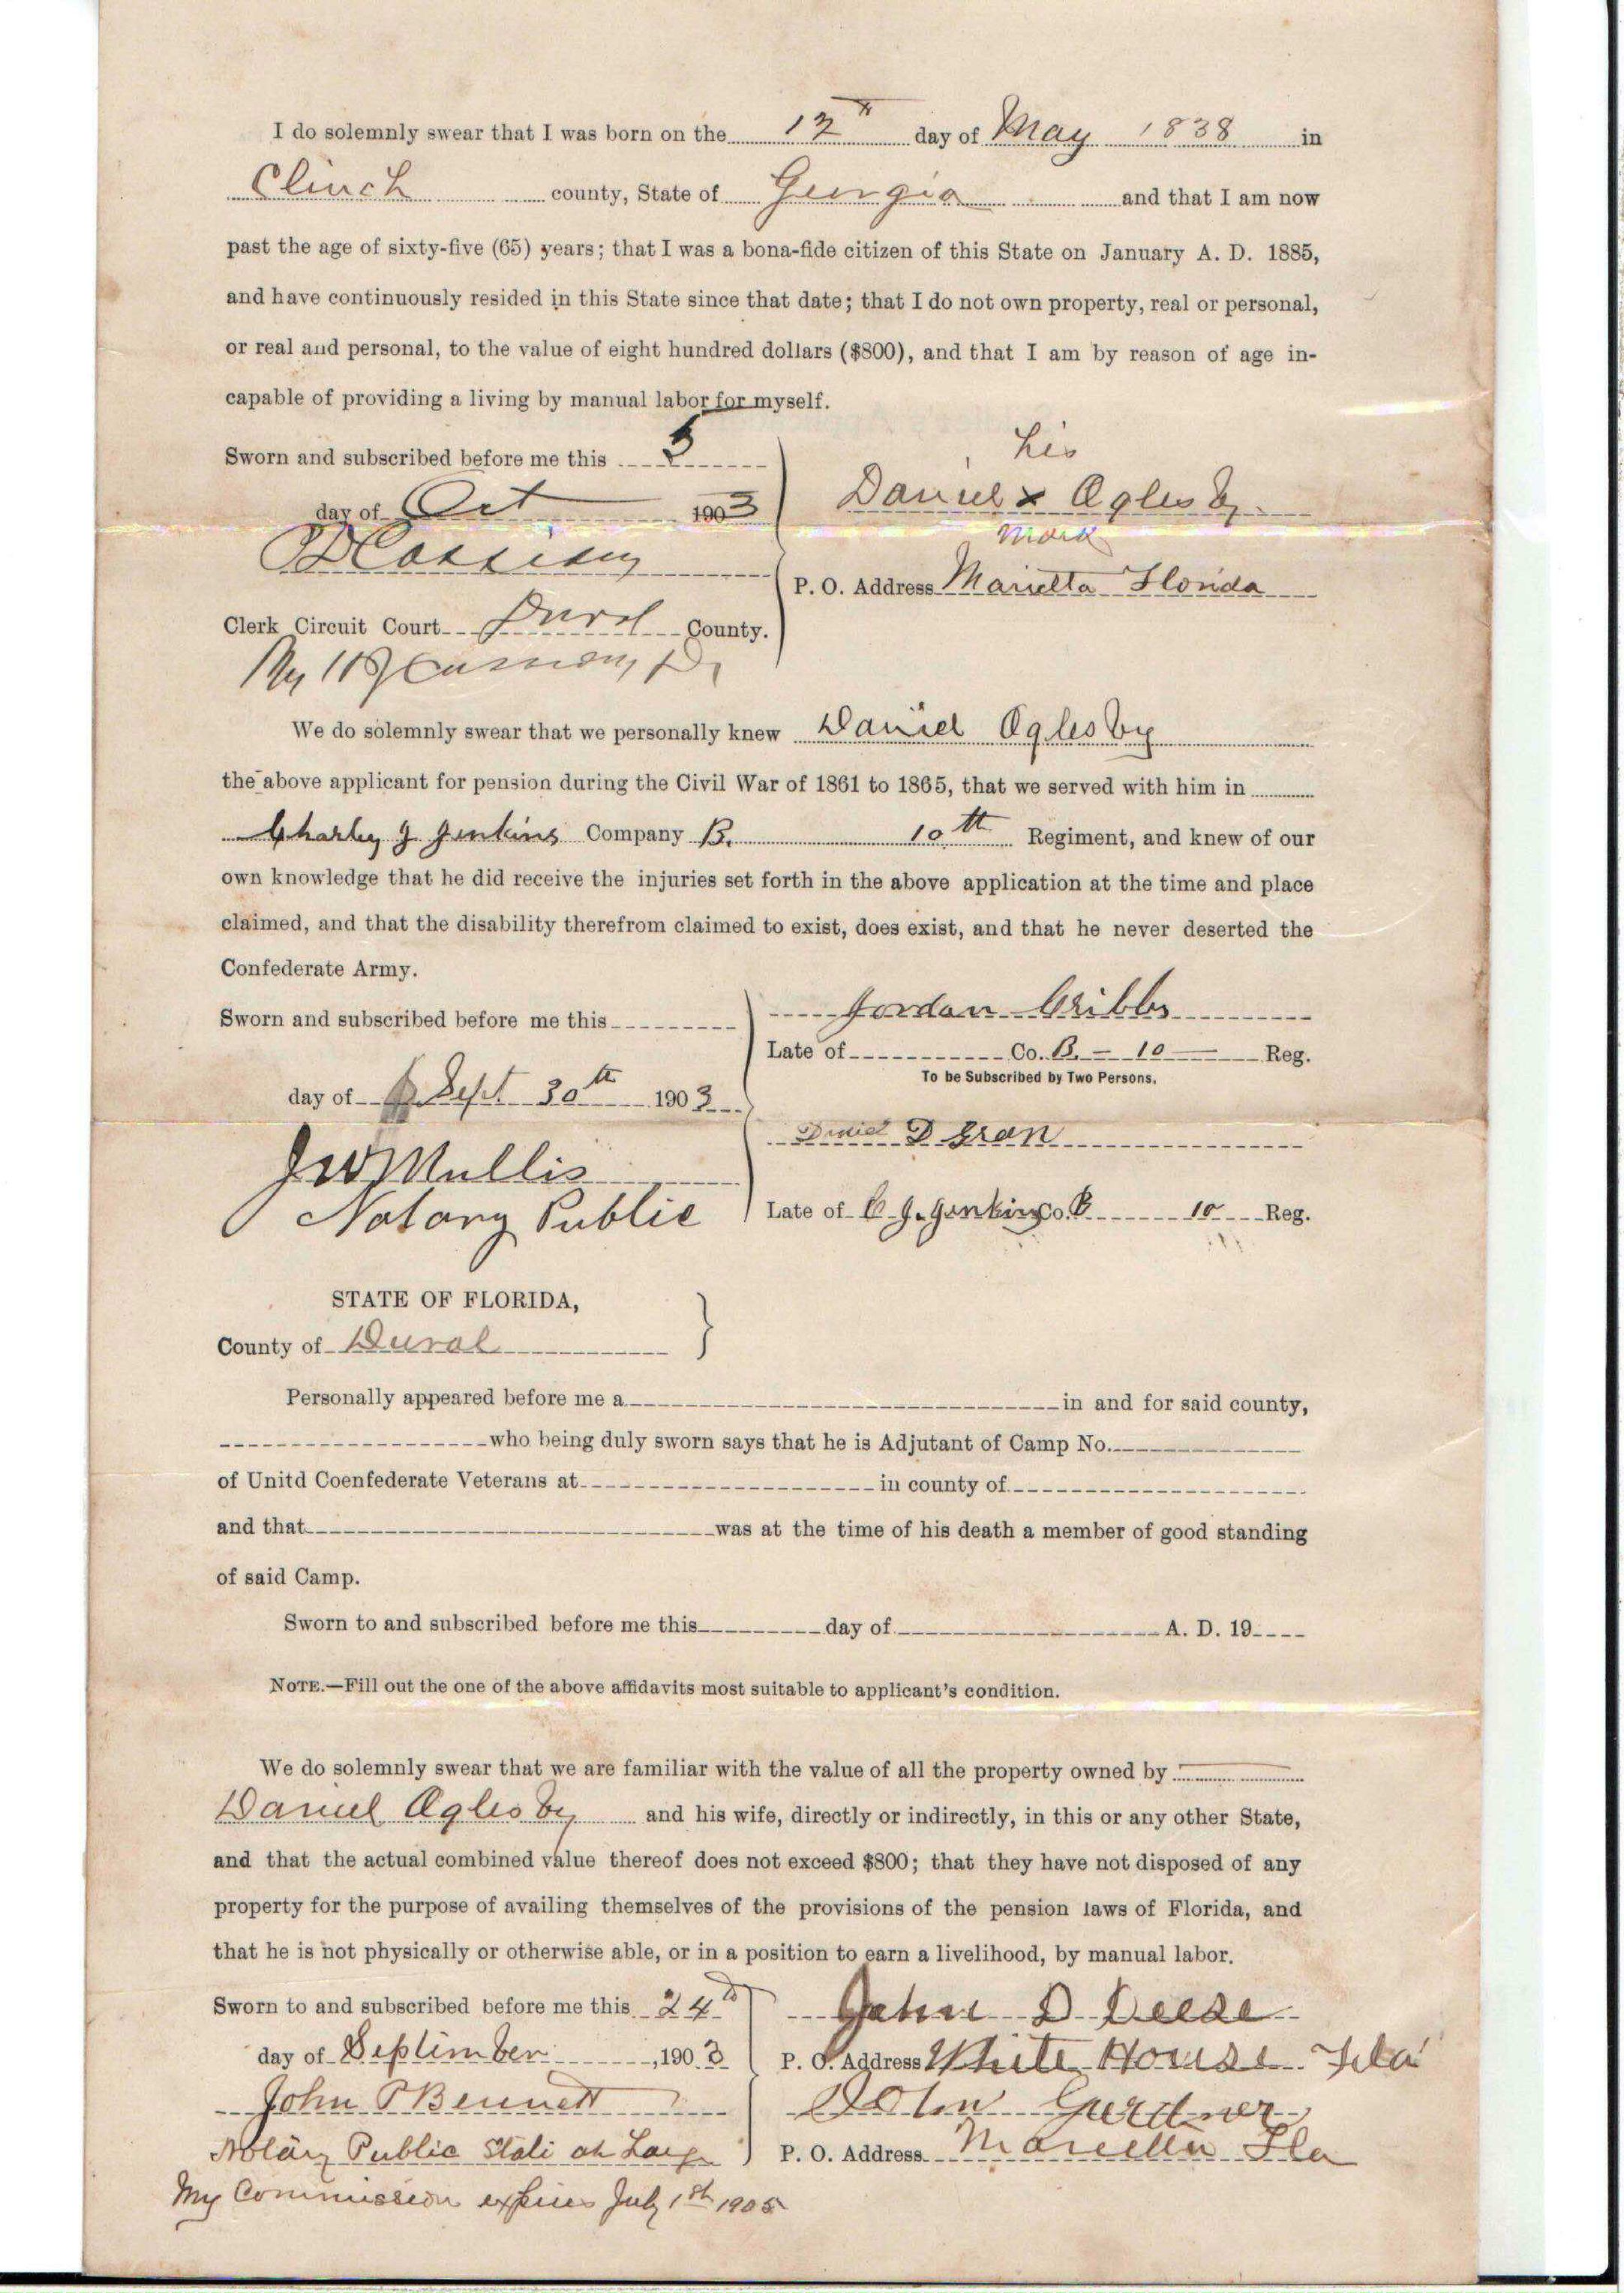 I do solemnly swear that I was born on the 12th day of May 1838 in
Clinch county, State of Georgia and that I am now
past the age of sixty-five (65) years; that I was a bona-fide citizen of this State on January A. D. 1885,
and have continuously resided in this State since that date; that I do not own property, real or personal,
or real and personal, to the value of eight hundred dollars ($800), and that I am by reason of age in-
capable of providing a living by manual labor for myself.
Sworn and subscribed before me this
day of Oct 1903
his
Daniel x Oglesby
mark
P. O. Address Marietta Florida
Clerk Circuit Court Duval County.
We do solemnly swear that we personally knew Daniel Oglesby
the above applicant for pension during the Civil War of 1861 to 1865, that we served with him in
Charley J Jenkins Company B. 10th Regiment, and knew of our
own knowledge that he did receive the injuries set forth in the above application at the time and place
claimed, and that the disability therefrom claimed to exist, does exist, and that he never deserted the
Confederate Army.
Sworn and subscribed before me this
day of Sept 30th 1903
J W Mullis
Notary Public
Jordan Cribbs
Late of Co. B. - 10 Reg.
To be Subscribed by Two Persons.
D
Late of C. J. Jenkins Co. B 10 Reg.
STATE OF FLORIDA,
County of Duval
Personally appeared before me a in and for said county,
who being duly sworn says that he is Adjutant of Camp No.
of Unitd Coenfederate Veterans at in county of
and that was at the time of his death a member of good standing
of said Camp.
Sworn to and subscribed before me this day of A. D. 19
NOTE.—Fill out the one of the above affidavits most suitable to applicant's condition.
We do solemnly swear that we are familiar with the value of all the property owned by
Daniel Oglesby and his wife, directly or indirectly, in this or any other State,
and that the actual combined value thereof does not exceed $800; that they have not disposed of any
property for the purpose of availing themselves of the provisions of the pension laws of Florida, and
that he is not physically or otherwise able, or in a position to earn a livelihood, by manual labor.
Sworn to and subscribed before me this 24th
day of September, 1903
John P Bennett
Notary Public State at Large
My Commission expires July 1st 1905
John D Deese
P. O. Address White House Fla
John Gurdner
P. O. Address Marietta Fla